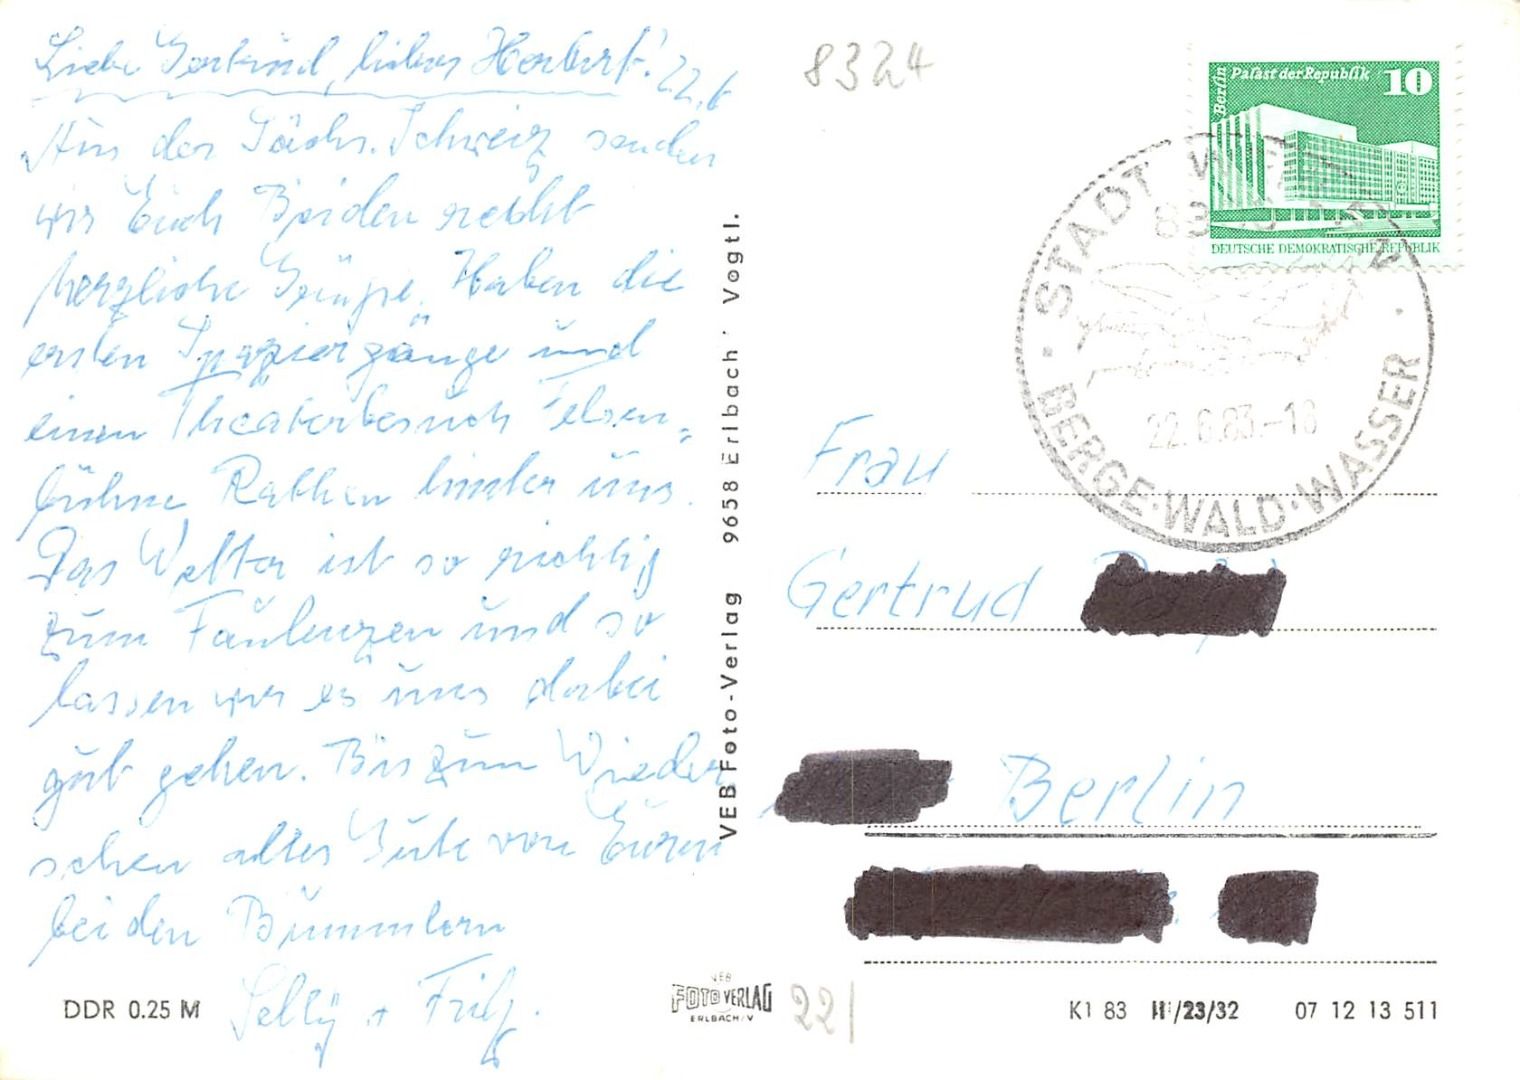 Liebe Gertrud, lieber Herbert! 22.6
Aus der Sächs. Schweiz senden
wir Euch Beiden recht
herzliche Grüße. Haben die
ersten Spaziergänge und
einen Theaterbesuch Felsen-
bühne Rathen hinter uns.
Das Wetter ist so richtig
zum Faulenzen und so
lassen wir es uns dabei
gut gehen. Bis zum Wieder
sehen alles Gute von Euren
beiden Bummlern
+ Fritz.
DDR 0.25 M
VEB Foto-Verlag 9658 Erlbach · Vogtl.
8324
Berlin Palast der Republik 10
DEUTSCHE DEMOKRATISCHE REPUBLIK
STADT
22.6.83.-18
BERGE·WALD·WASSER
Frau
Gertrud
Berlin
VEB
FOTO VERLAG
ERLBACH/V
221
K1 83 III/23/32 07 12 13 511